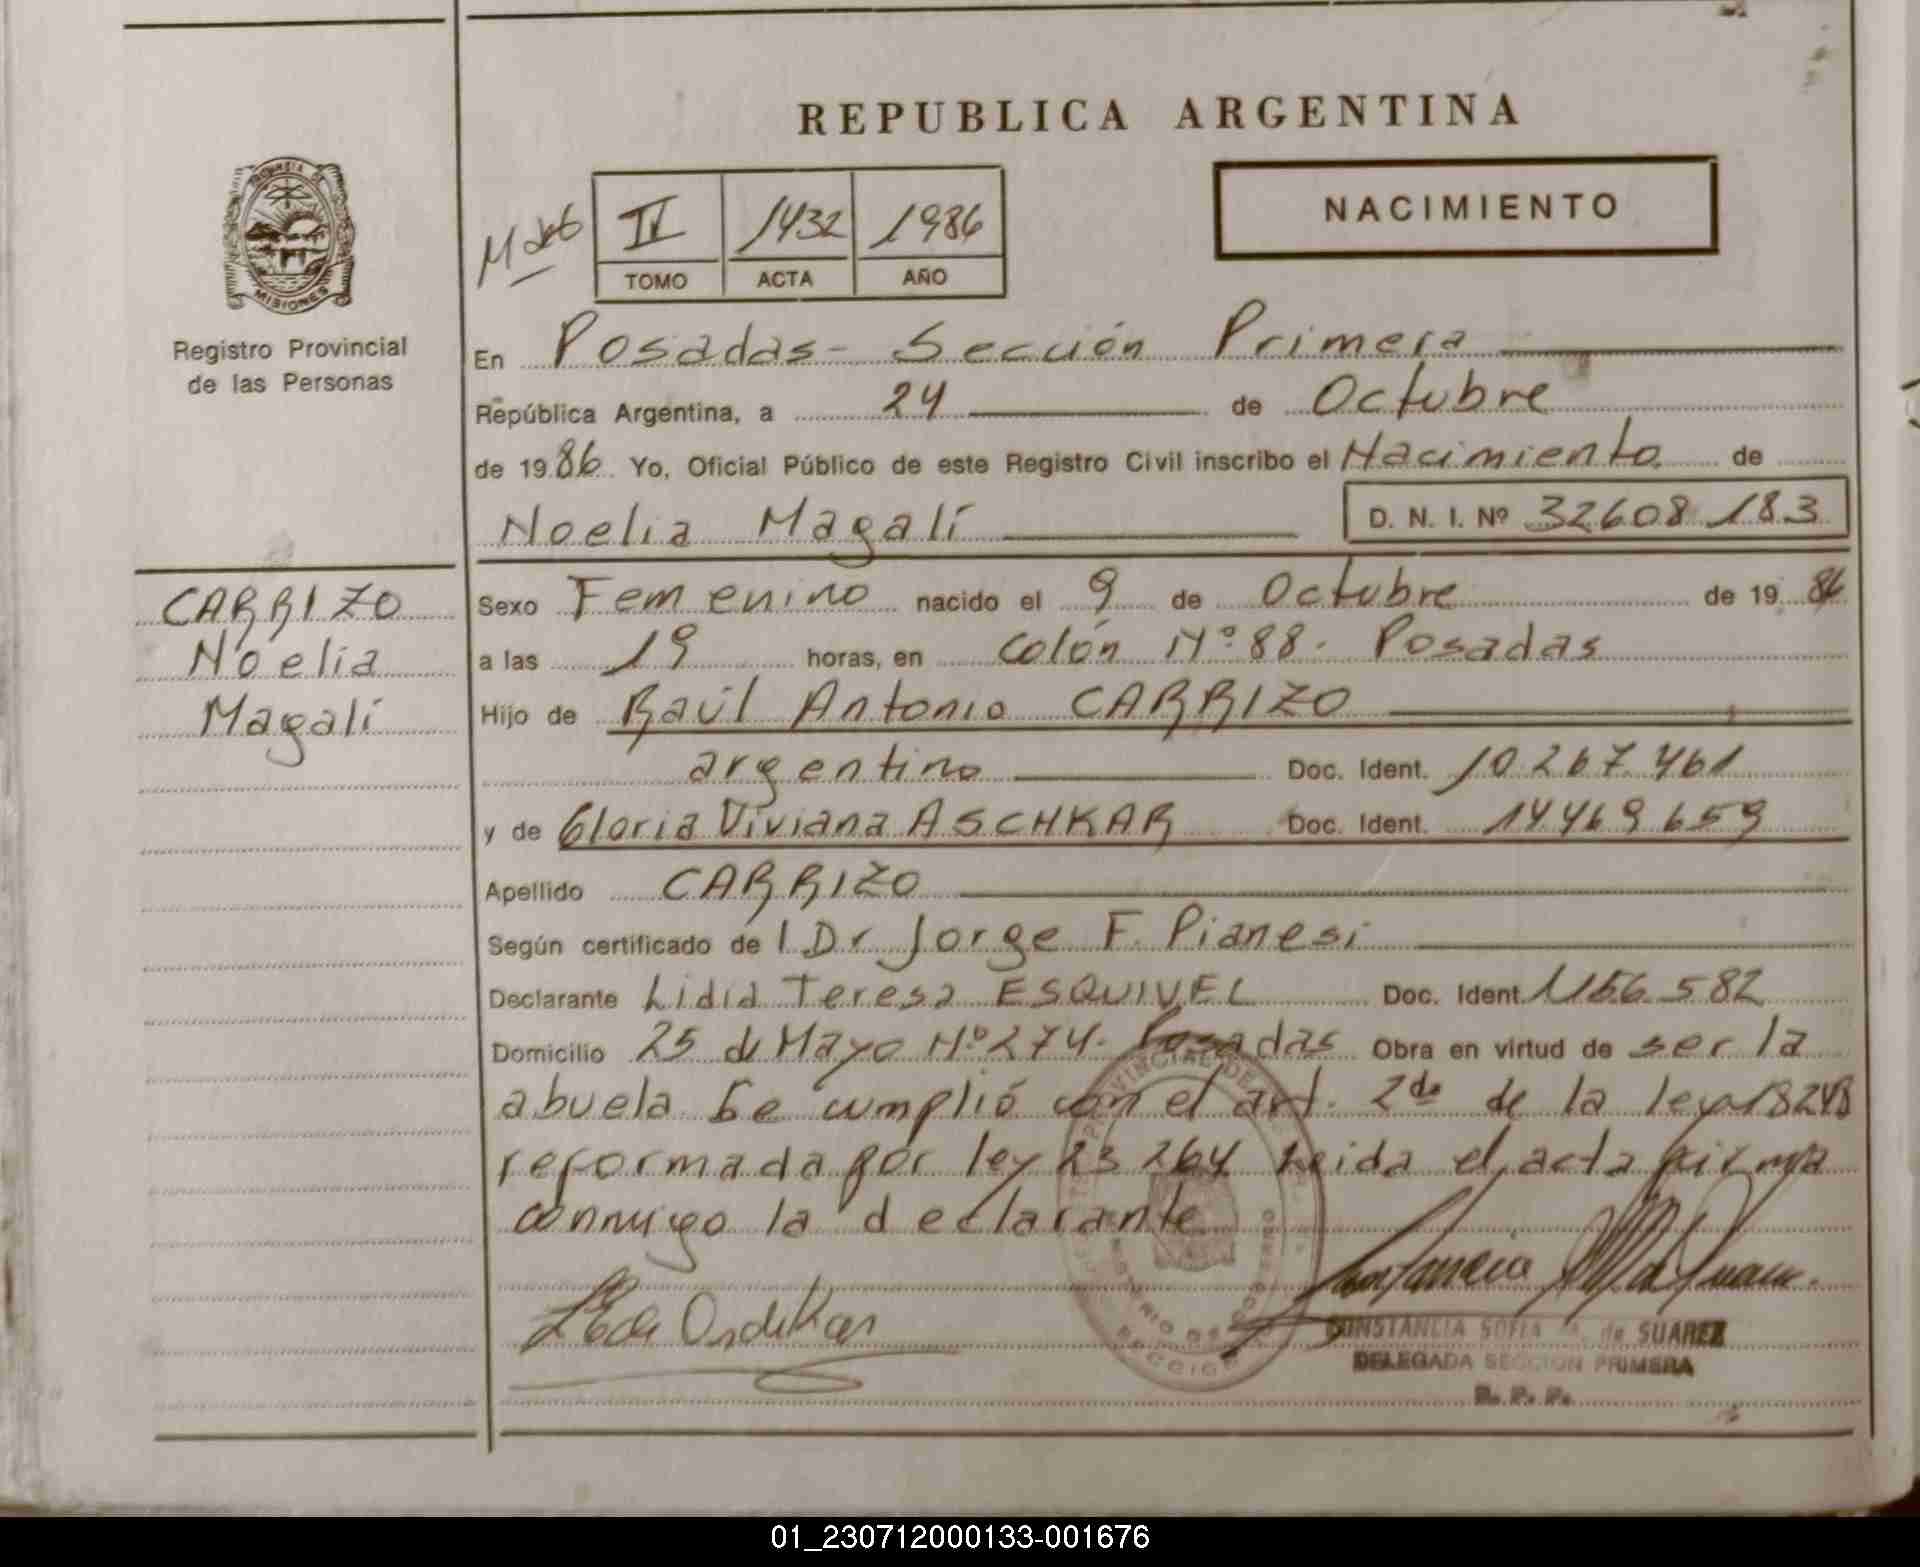 REPUBLICA ARGENTINA
NACIMIENTO
IV 1432 1986
TOMO ACTA AÑO
PROVINCIA DE
MISIONES
Registro Provincial
de las Personas
En Posadas- Sección Primera
República Argentina, a 24 de Octubre
de 1986 Yo, Oficial Público de este Registro Civil inscribo el Nacimiento de
Noelia Magalí D. N. I. Nº 32608183
CARRIZO
Noelia
Magalí
Sexo Femenino nacido el 9 de Octubre de 19 86
a las 19 horas, en Colón Nº 88. Posadas
Hijo de Raúl Antonio CARRIZO
argentino Doc. Ident. 10.267.461
y de Gloria Viviana ASCHKAR Doc. Ident. 14469659
Apellido CARRIZO
Según certificado del Dr Jorge F. Pianesi
Declarante Lidia Teresa ESQUIVEL Doc. Ident. 582
Domicilio 25 de Mayo Nº 274. Posadas Obra en virtud de ser la
abuela Se cumplió con el art. 2do de la ley 18248
reformada por ley 23264 Leida el acta firma
conmigo la declarante
CONSTANCIA SOFIA de SUAREZ
DELEGADA SECCION PRIMERA
R. P. P.
01_230712000133-001676